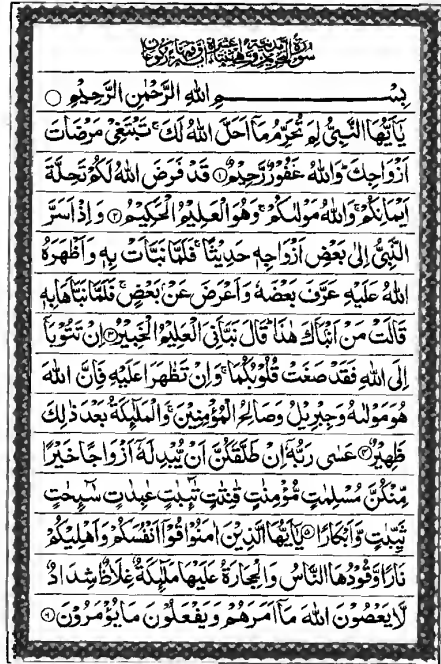 سورة التحريم مدنية وهي اثنتا عشرة اية وفيها ركوعان
بِسْمِ اللهِ الرَّحْمٰنِ الرَّحِيْمِ
يٰۤاَيُّهَا النَّبِيُّ لِمَ تُحَرِّمُ مَاۤ اَحَلَّ اللهُ لَكَ ۚ تَبْتَغِيْ مَرْضَاتَ
اَزْوَاجِكَ ؕ وَاللهُ غَفُوْرٌ رَّحِيْمٌ ۝۱ قَدْ فَرَضَ اللهُ لَكُمْ تَحِلَّةَ
اَيْمَانِكُمْ ۚ وَاللهُ مَوْلٰىكُمْ ۚ وَهُوَ الْعَلِيْمُ الْحَكِيْمُ ۝۲ وَاِذْ اَسَرَّ
النَّبِيُّ اِلٰى بَعْضِ اَزْوَاجِهٖ حَدِيْثًا ۚ فَلَمَّا نَبَّاَتْ بِهٖ وَاَظْهَرَهُ
اللهُ عَلَيْهِ عَرَّفَ بَعْضَهٗ وَاَعْرَضَ عَنْۢ بَعْضٍ ۚ فَلَمَّا نَبَّاَهَا بِهٖ
قَالَتْ مَنْ اَنْۢبَاَكَ هٰذَا ؕ قَالَ نَبَّاَنِيَ الْعَلِيْمُ الْخَبِيْرُ ۝۳ اِنْ تَتُوْبَاۤ
اِلَى اللهِ فَقَدْ صَغَتْ قُلُوْبُكُمَا ۚ وَاِنْ تَظٰهَرَا عَلَيْهِ فَاِنَّ اللهَ
هُوَ مَوْلٰىهُ وَجِبْرِيْلُ وَصَالِحُ الْمُؤْمِنِيْنَ ۚ وَالْمَلٰٓئِكَةُ بَعْدَ ذٰلِكَ
ظَهِيْرٌ ۝۴ عَسٰى رَبُّهٗۤ اِنْ طَلَّقَكُنَّ اَنْ يُّبْدِلَهٗۤ اَزْوَاجًا خَيْرًا
مِّنْكُنَّ مُسْلِمٰتٍ مُّؤْمِنٰتٍ قٰنِتٰتٍ تٰٓئِبٰتٍ عٰبِدٰتٍ سٰٓئِحٰتٍ
ثَيِّبٰتٍ وَّاَبْكَارًا ۝۵ يٰۤاَيُّهَا الَّذِيْنَ اٰمَنُوْا قُوْۤا اَنْفُسَكُمْ وَاَهْلِيْكُمْ
نَارًا وَّقُوْدُهَا النَّاسُ وَالْحِجَارَةُ عَلَيْهَا مَلٰٓئِكَةٌ غِلَاظٌ شِدَادٌ
لَّا يَعْصُوْنَ اللهَ مَاۤ اَمَرَهُمْ وَيَفْعَلُوْنَ مَا يُؤْمَرُوْنَ ۝۶